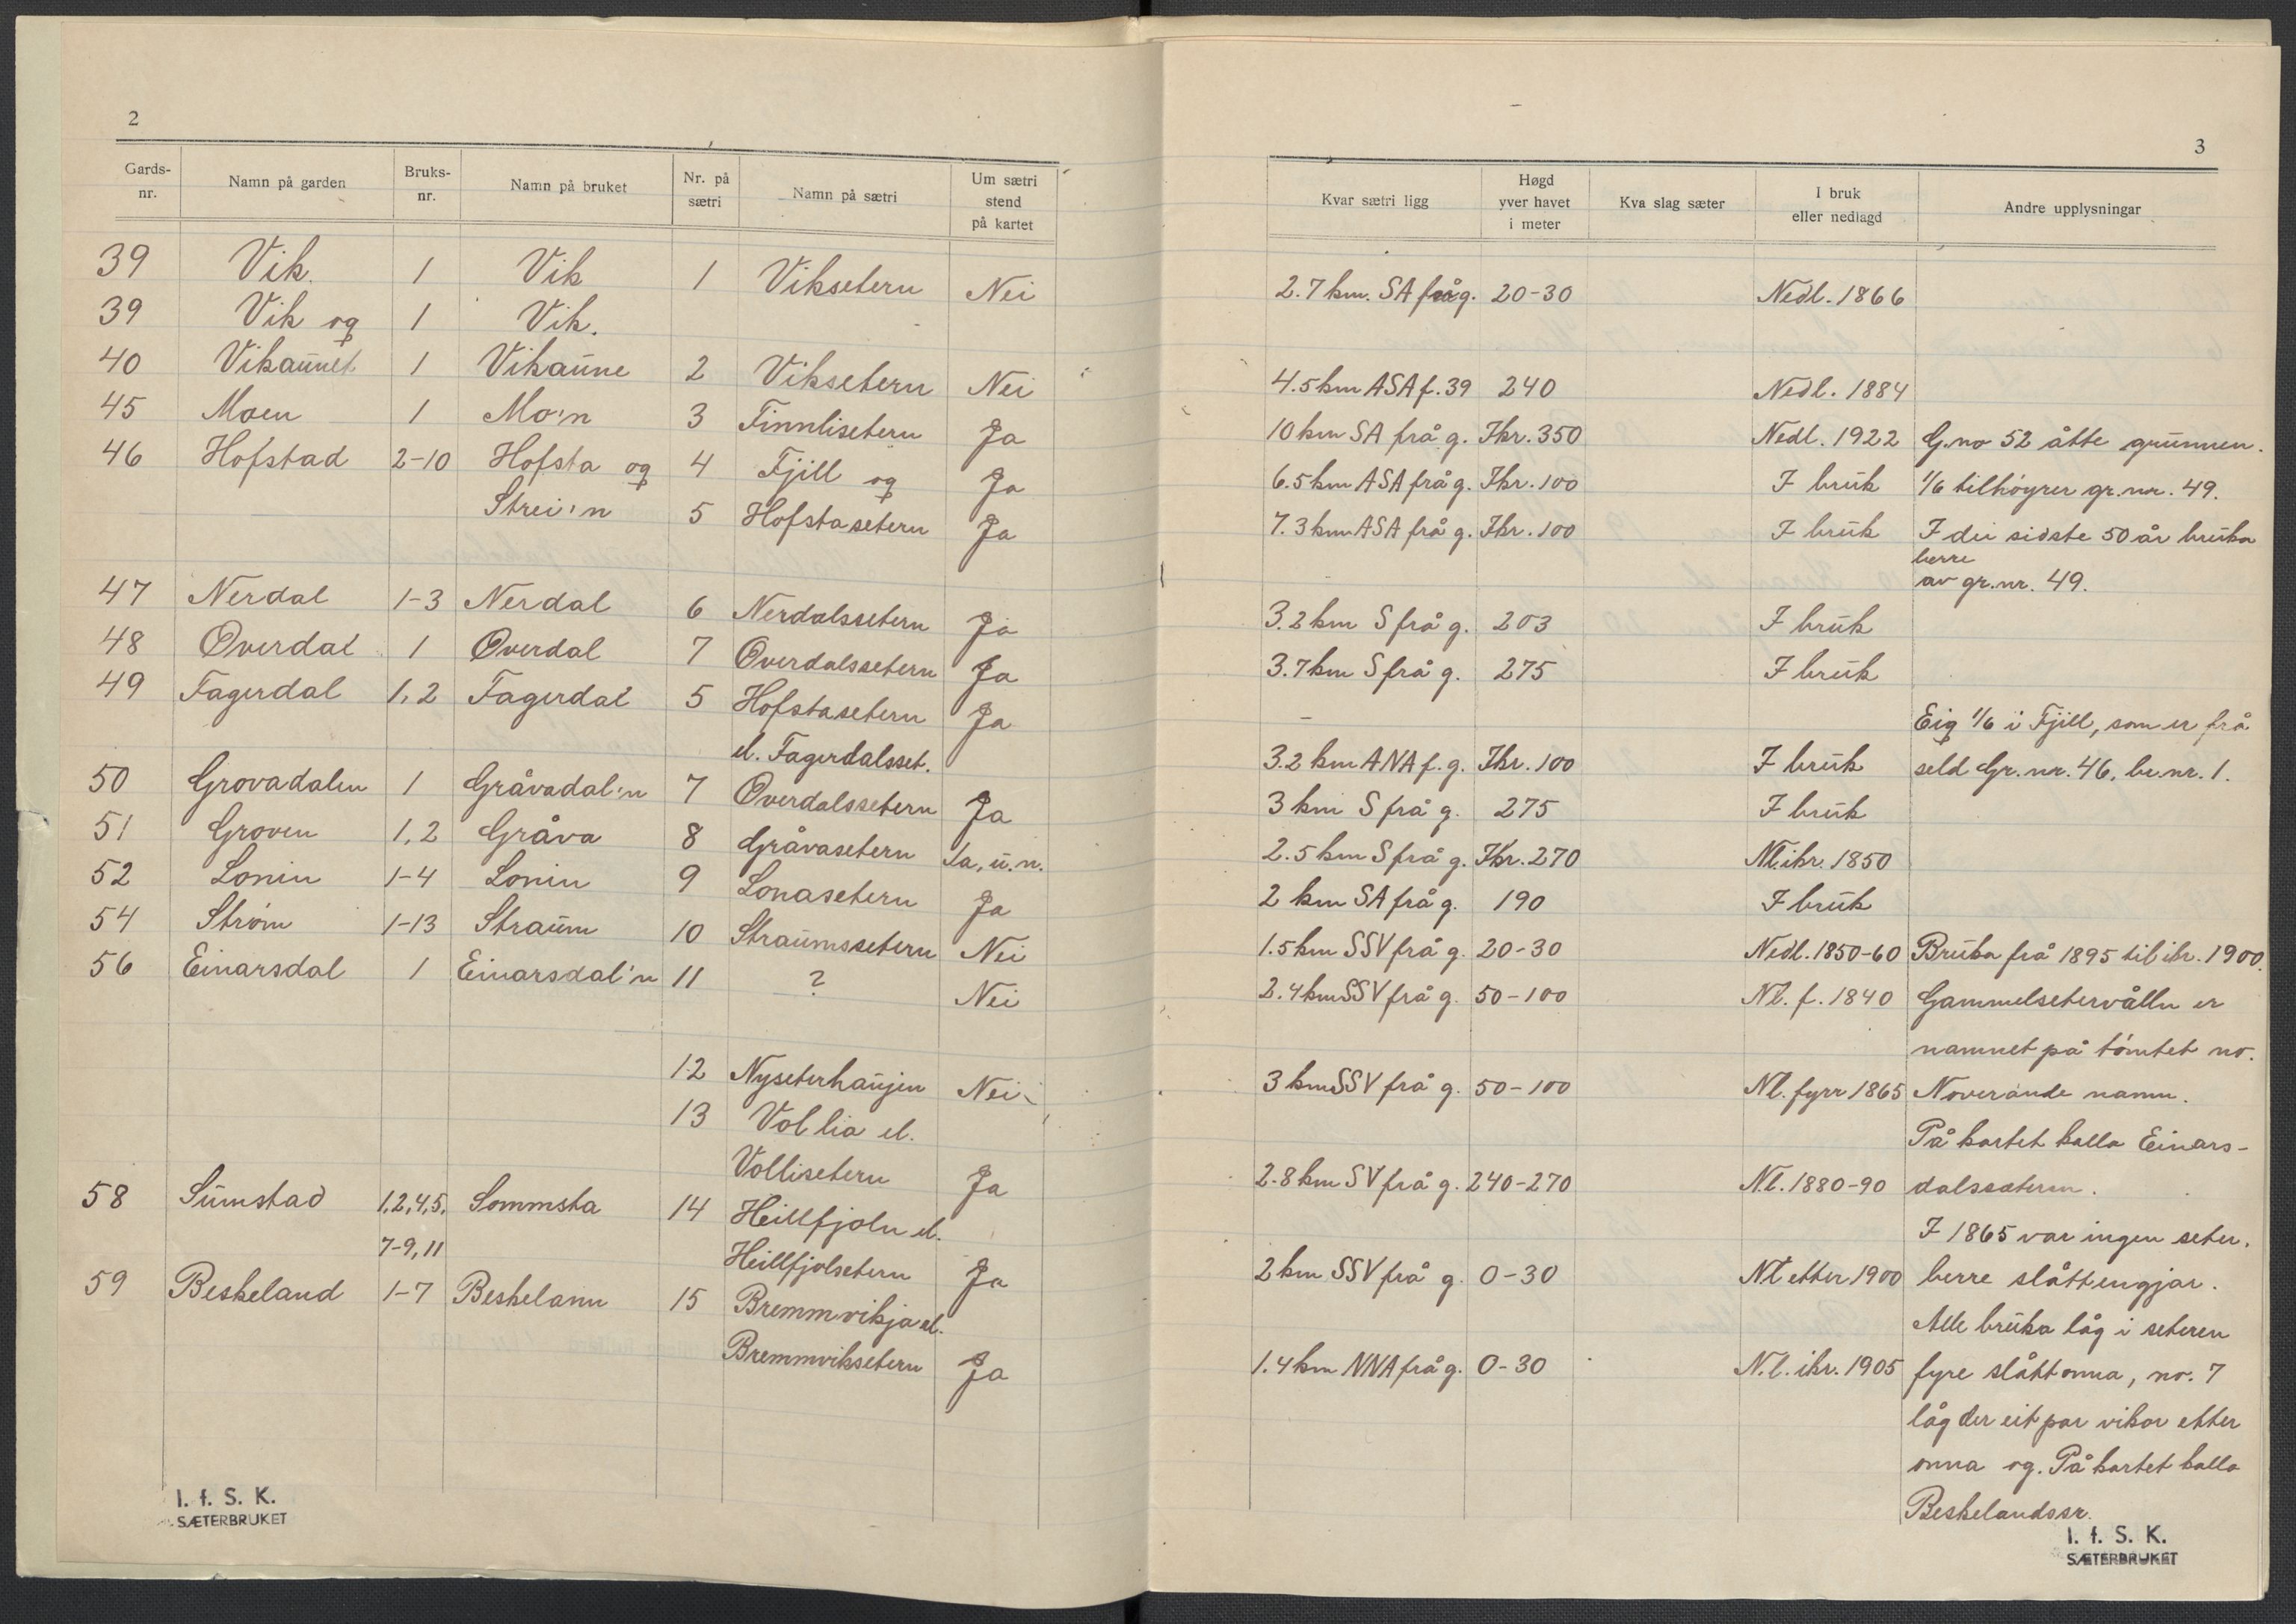 2
Gards-nr. Namn på garden Bruks-nr. Namn på bruket Nr. på sætri Namn på sætri Um sætri stend på kartet
39 Vik. 1 Vik 1 Viksetern Nei
39 Vik og 1 Vik.
40 Vikaunet 1 Vikaune 2 Viksetern Nei
45 Moen 1 Mo'n 3 Finnlisetern Ja
46 Hofstad 2-10 Hofsta og 4 Fjill og Ja
Strei'n 5 Hofstasetern Ja
47 Nerdal 1-3 Nerdal 6 Nerdalssetern Ja
48 Overdal 1 Overdal 7 Overdalssetern Ja
49 Fagerdal 1,2 Fagerdal 5 Hofstasetern Ja
el. Fagerdalsset.
50 Grovadalen 1 Gråvadal'n 7 Overdalssetern Ja
51 Groven 1,2 Gråva 8 Gråvasetern Ja, u.n.
52 Lonin 1-4 Lonin 9 Lonasetern Ja
54 Strøm 1-13 Straum 10 Straumssetern Nei
56 Einarsdal 1 Einarsdal'n 11 ? Nei
12 Nyseterhaujen Nei
13 Vollia el.
Vollisetern Ja
58 Sumstad 1,2,4,5, Sommsta 14 Heillfjoln el.
7-9,11 Heillfjolsetern Ja
59 Beskeland 1-7 Beskelann 15 Bremmvikja el.
Bremmviksetern Ja
I. f. S. K.
SÆTERBRUKET
3
Kvar sætri ligg Høgd yver havet i meter Kva slag sæter I bruk eller nedlagd Andre upplysningar
2.7 km. SA frå g. 20-30 Nedl. 1866
4.5 km ASA f. 39 240 Nedl. 1884
10 km SA frå g. Ikr. 350 Nedl. 1922 G.no 52 åtte grunnen.
6.5 km ASA frå g. Ikr. 100 I bruk 1/6 tilhøyrer gr.nr. 49.
7.3 km ASA frå g. Ikr. 100 I bruk I dei sidste 50 år bruka
berre
av gr.nr. 49.
3.2 km S frå g. 203 I bruk
3.7 km S frå g. 275 I bruk
Eig 1/6 i Fjill, som er frå
3.2 km ANA f. g. Ikr. 100 I bruk seld Gr.nr. 46, br.nr. 1.
3 km S frå g. 275 I bruk
2.5 km S frå g. Ikr. 270 Nl. ikr. 1850
2 km SA frå g. 190 I bruk
1.5 km SSV frå g. 20-30 Nedl. 1850-60 Bruka frå 1895 til ikr. 1900.
2.4 km SSV frå g. 50-100 Nl. f. 1840 Gammelsetervålln er
namnet på tomtet no.
3 km SSV frå g. 50-100 Nl. fyrr 1865 Noverande namn.
På kartet kalla Einars-
2.8 km SV frå g. 240-270 N.l. 1880-90 dalssætern.
I 1865 var ingen seter.
2 km SSV frå g. 0-30 Nl etter 1900 berre slåttengjar.
Alle bruka låg i seteren
1.4 km NNA frå g. 0-30 N.l. ikr. 1905 fyre slåttonna, no. 7
låg der eit par vikor etter
onna og. På kartet kalla
Beskelandssr.
I. f. S. K.
SÆTERBRUKET